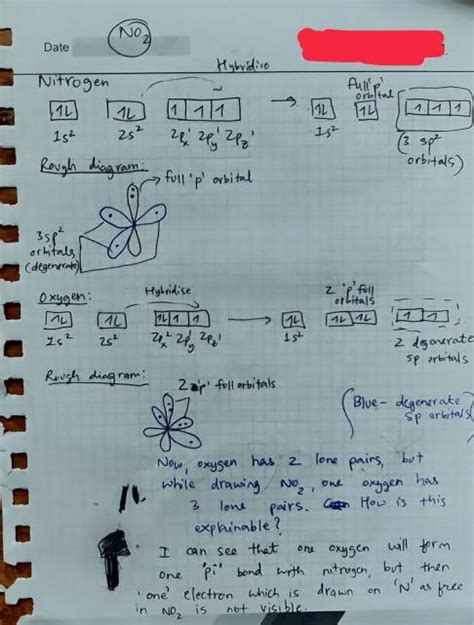 NO2
Date
Hybridise
Nitrogen
full 'p' orbital
1L 1L 1 1 1 → 1L 1L 1 1 1
1s² 2s² 2px¹ 2py¹ 2pz¹ 1s² (3 sp² orbitals)
Rough diagram:
→ full 'p' orbital
3 sp² orbitals (degenerate)
Oxygen:
Hybridise
2 'p' full orbitals
1L 1L 1L 1 1 → 1L 1L 1L 1 1
1s² 2s² 2px² 2py¹ 2pz¹ 1s² 2 degenerate sp orbitals
Rough diagram:
2 'p' full orbitals
(Blue - degenerate sp orbitals)
Now, oxygen has 2 lone pairs, but
while drawing NO2, one oxygen has
3 lone pairs. How is this
explainable?
I can see that one oxygen will form
one 'pi' bond with nitrogen, but then
'one' electron which is drawn on 'N' as free
in NO2 is not visible.